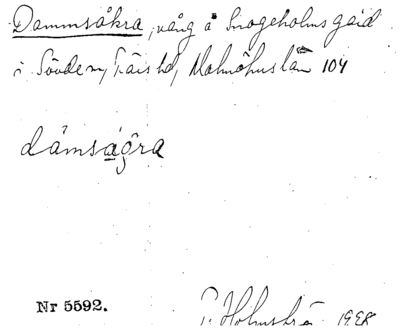 Dammsåkra, vång å Snogeholms gård
i Sövde sn, Färs hd, Malmöhus län 104
dámsågra
Nr 5592.
P. Holmströ 1928